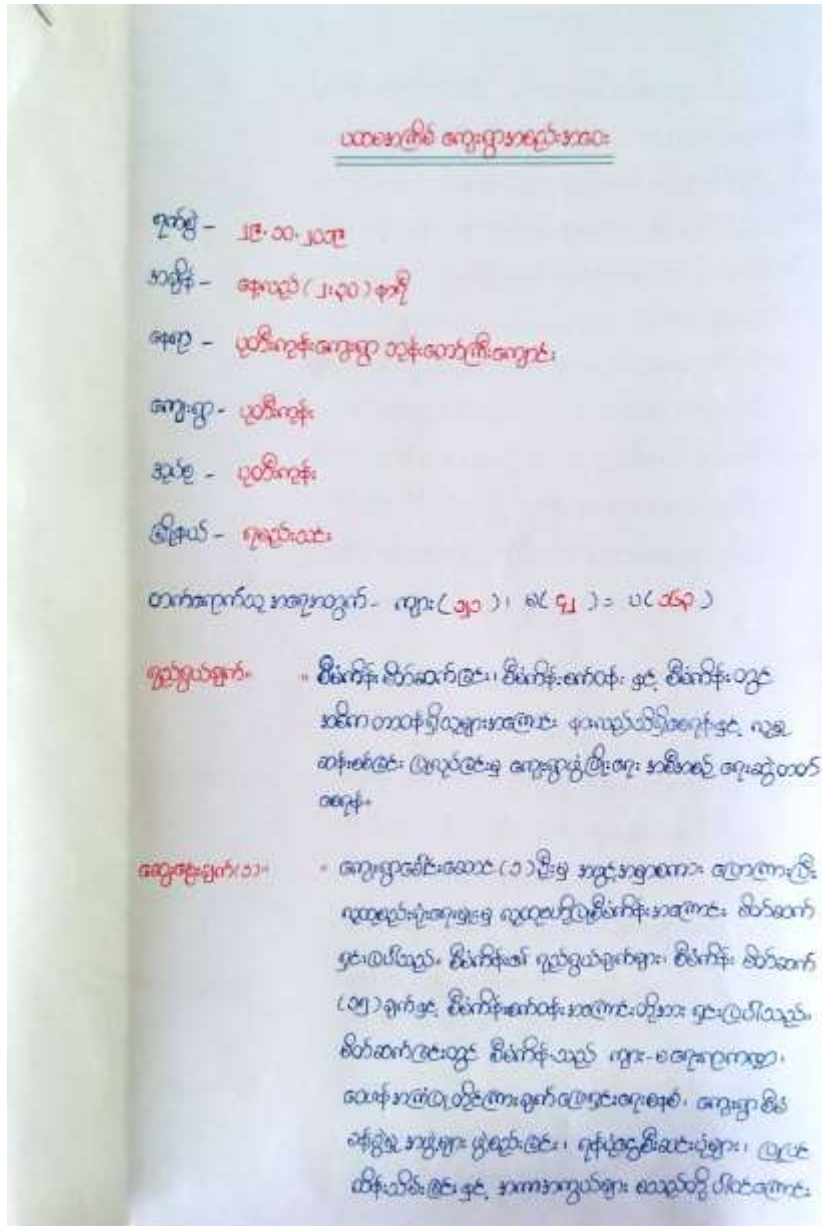 ပထမအကြိမ် ကျေးရွာအစည်းအဝေး
ရက်စွဲ - ၂၉.၁၀.၂၀၁၉
အချိန် - နေ့လည် (၂:၃၀) နာရီ
နေရာ - ပုတီးကုန်းကျေးရွာ ဘုန်းတော်ကြီးကျောင်း
ကျေးရွာ - ပုတီးကုန်း
အုပ်စု - ပုတီးကုန်း
မြို့နယ် - ရမည်းသင်း
တက်ရောက်သူ အရေအတွက် - ကျား( ၁၅၁ )၊ မ( ၄၂ ) = ပ( ၁၆၃ )
ရည်ရွယ်ချက်။ ။ စီမံကိန်း မိတ်ဆက်ခြင်း၊ စီမံကိန်းစက်ဝန်း နှင့် စီမံကိန်းတွင်
အဓိက တာဝန်ရှိသူများအကြောင်း နားလည်သိရှိစေရန်နှင့် လူမှု
ဆန်းစစ်ခြင်း ပြုလုပ်ခြင်းမှ ကျေးရွာဖွံ့ဖြိုးရေး အစီအစဉ် ရေးဆွဲတတ်
စေရန်။
ဆွေးနွေးချက်(၁)။ ။ ကျေးရွာခေါင်းဆောင် (၁)ဦးမှ အဖွင့်အမှာစကား ပြောကြားပြီး
လူထုစည်းရုံးရေးမှူးမှ လူထုဗဟိုပြုစီမံကိန်းအကြောင်း မိတ်ဆက်
ရှင်းပြပါသည်။ စီမံကိန်း၏ ရည်ရွယ်ချက်များ၊ စီမံကိန်း မိတ်ဆက်
(၁၅)ချက်နှင့် စီမံကိန်းစက်ဝန်းအကြောင်းတို့အား ရှင်းပြပါသည်။
မိတ်ဆက်ခြင်းတွင် စီမံကိန်းသည် ကျား-မရေးရာကဏ္ဍ၊
ဝေဖန်အကြံပြုတိုင်ကြားချက်ဖြေရှင်းရေးစနစ်၊ ကျေးရွာစီမံ
ခန့်ခွဲမှု အဖွဲ့များ ဖွဲ့စည်းခြင်း၊ ရန်ပုံငွေစီးဆင်းပုံများ၊ ပြုပြင်
ထိန်းသိမ်းခြင်းနှင့် အကာအကွယ်များ စသည်တို့ ပါဝင်ကြောင်း